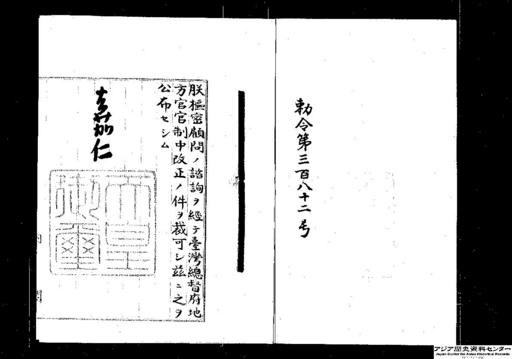 勅令第三百八十二号
朕樞密顧問ノ諮詢ヲ經テ臺灣總督府地
方官官制中改正ノ件ヲ裁可シ茲ニ之ヲ
公布セシム
嘉仁
天皇
御璽
アジア歴史資料センター
Japan Center for Asian Historical Records